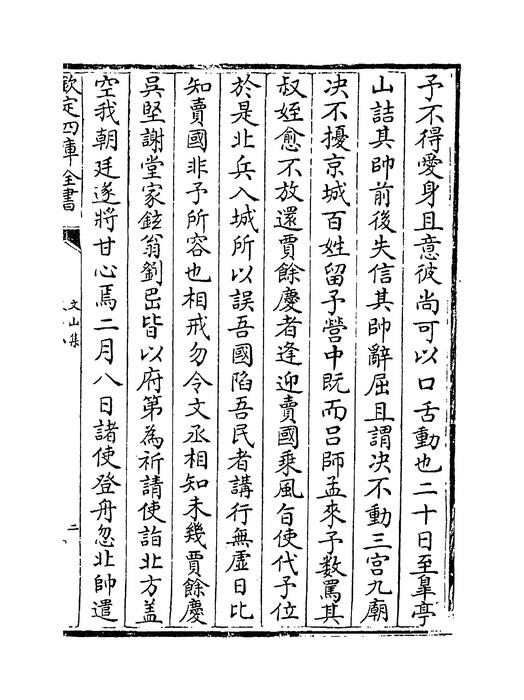 予不得愛身且意彼尚可以口舌動也二十日至臯亭
山詰其帥前後失信其帥辭屈且謂决不動三宫九廟
决不擾京城百姓留予營中既而吕師孟來予數罵其
叔姪愈不放還賈餘慶者逢迎賣國乘風㫖使代予位
於是北兵入城所以誤吾國陷吾民者講行無虚日比
知賣國非予所容也相戒勿令文丞相知未幾賈餘慶
吳堅謝堂家鉉翁劉岊皆以府第為祈請使詣北方盖
空我朝廷遂將甘心焉二月八日諸使登舟忽北帥遣
欽定四庫全書
文山集
二